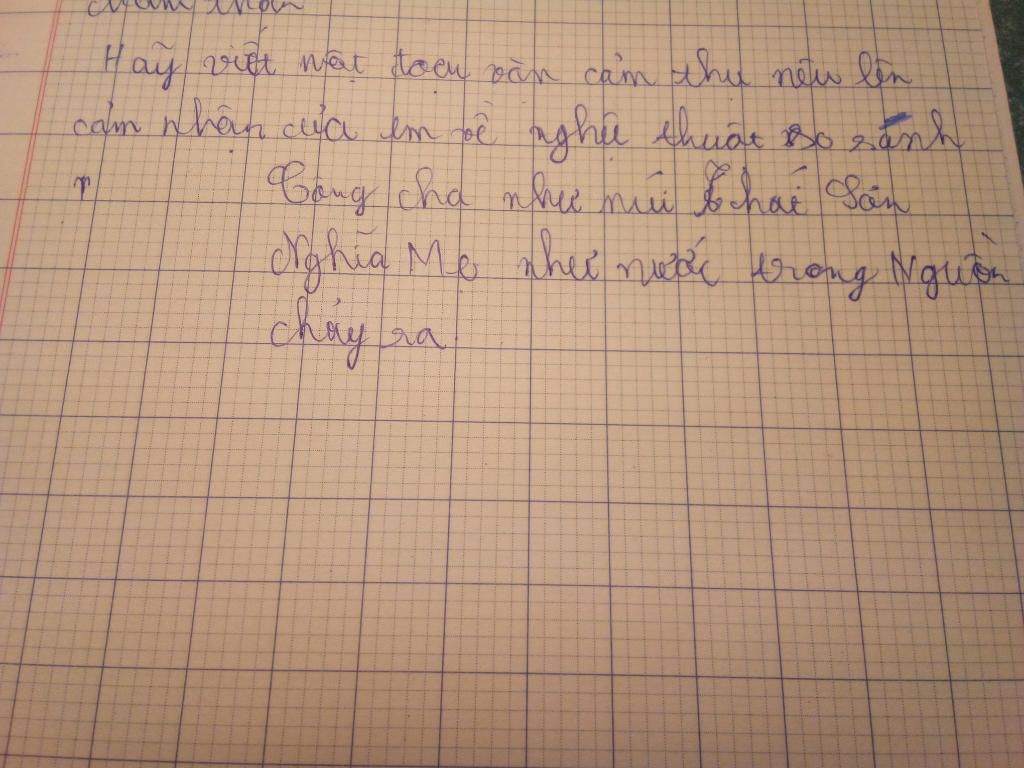 Hãy viết một đoạn văn cảm thụ nêu lên
cảm nhận của em về nghệ thuật so sánh
Công cha như núi Thái Sơn
Nghĩa Mẹ như nước trong Nguồn
chảy ra